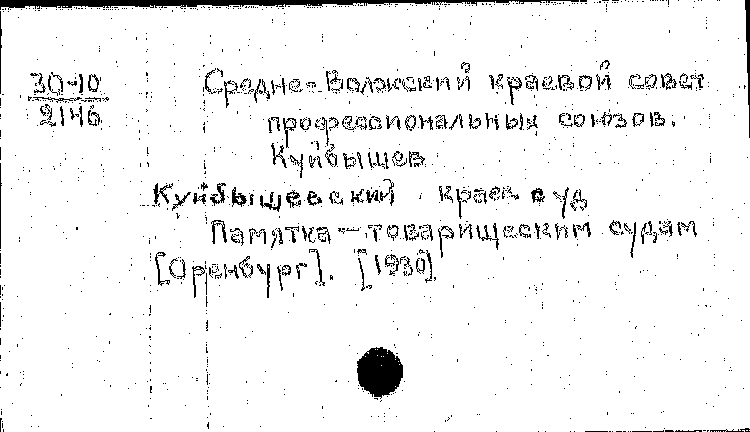 30-10
2146
Средне-Волжский краевой совет
профессиональных союзов.
Куйбышев
Куйбышевский краев суд
Памятка — товарищеским судам
[Оренбург]. [1930]